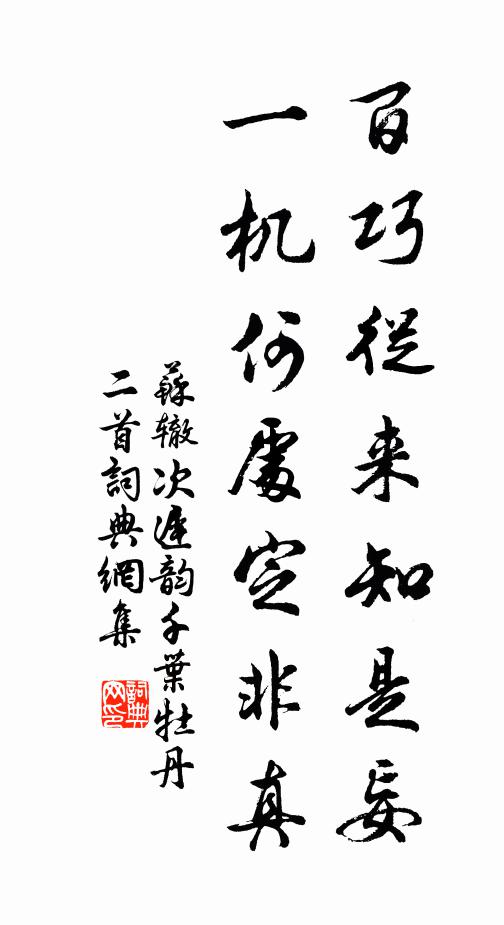 百巧從来知是妄
一机何處定非真
蘇辙次遲韵千葉牡丹
二首詞典網集
詞典网印